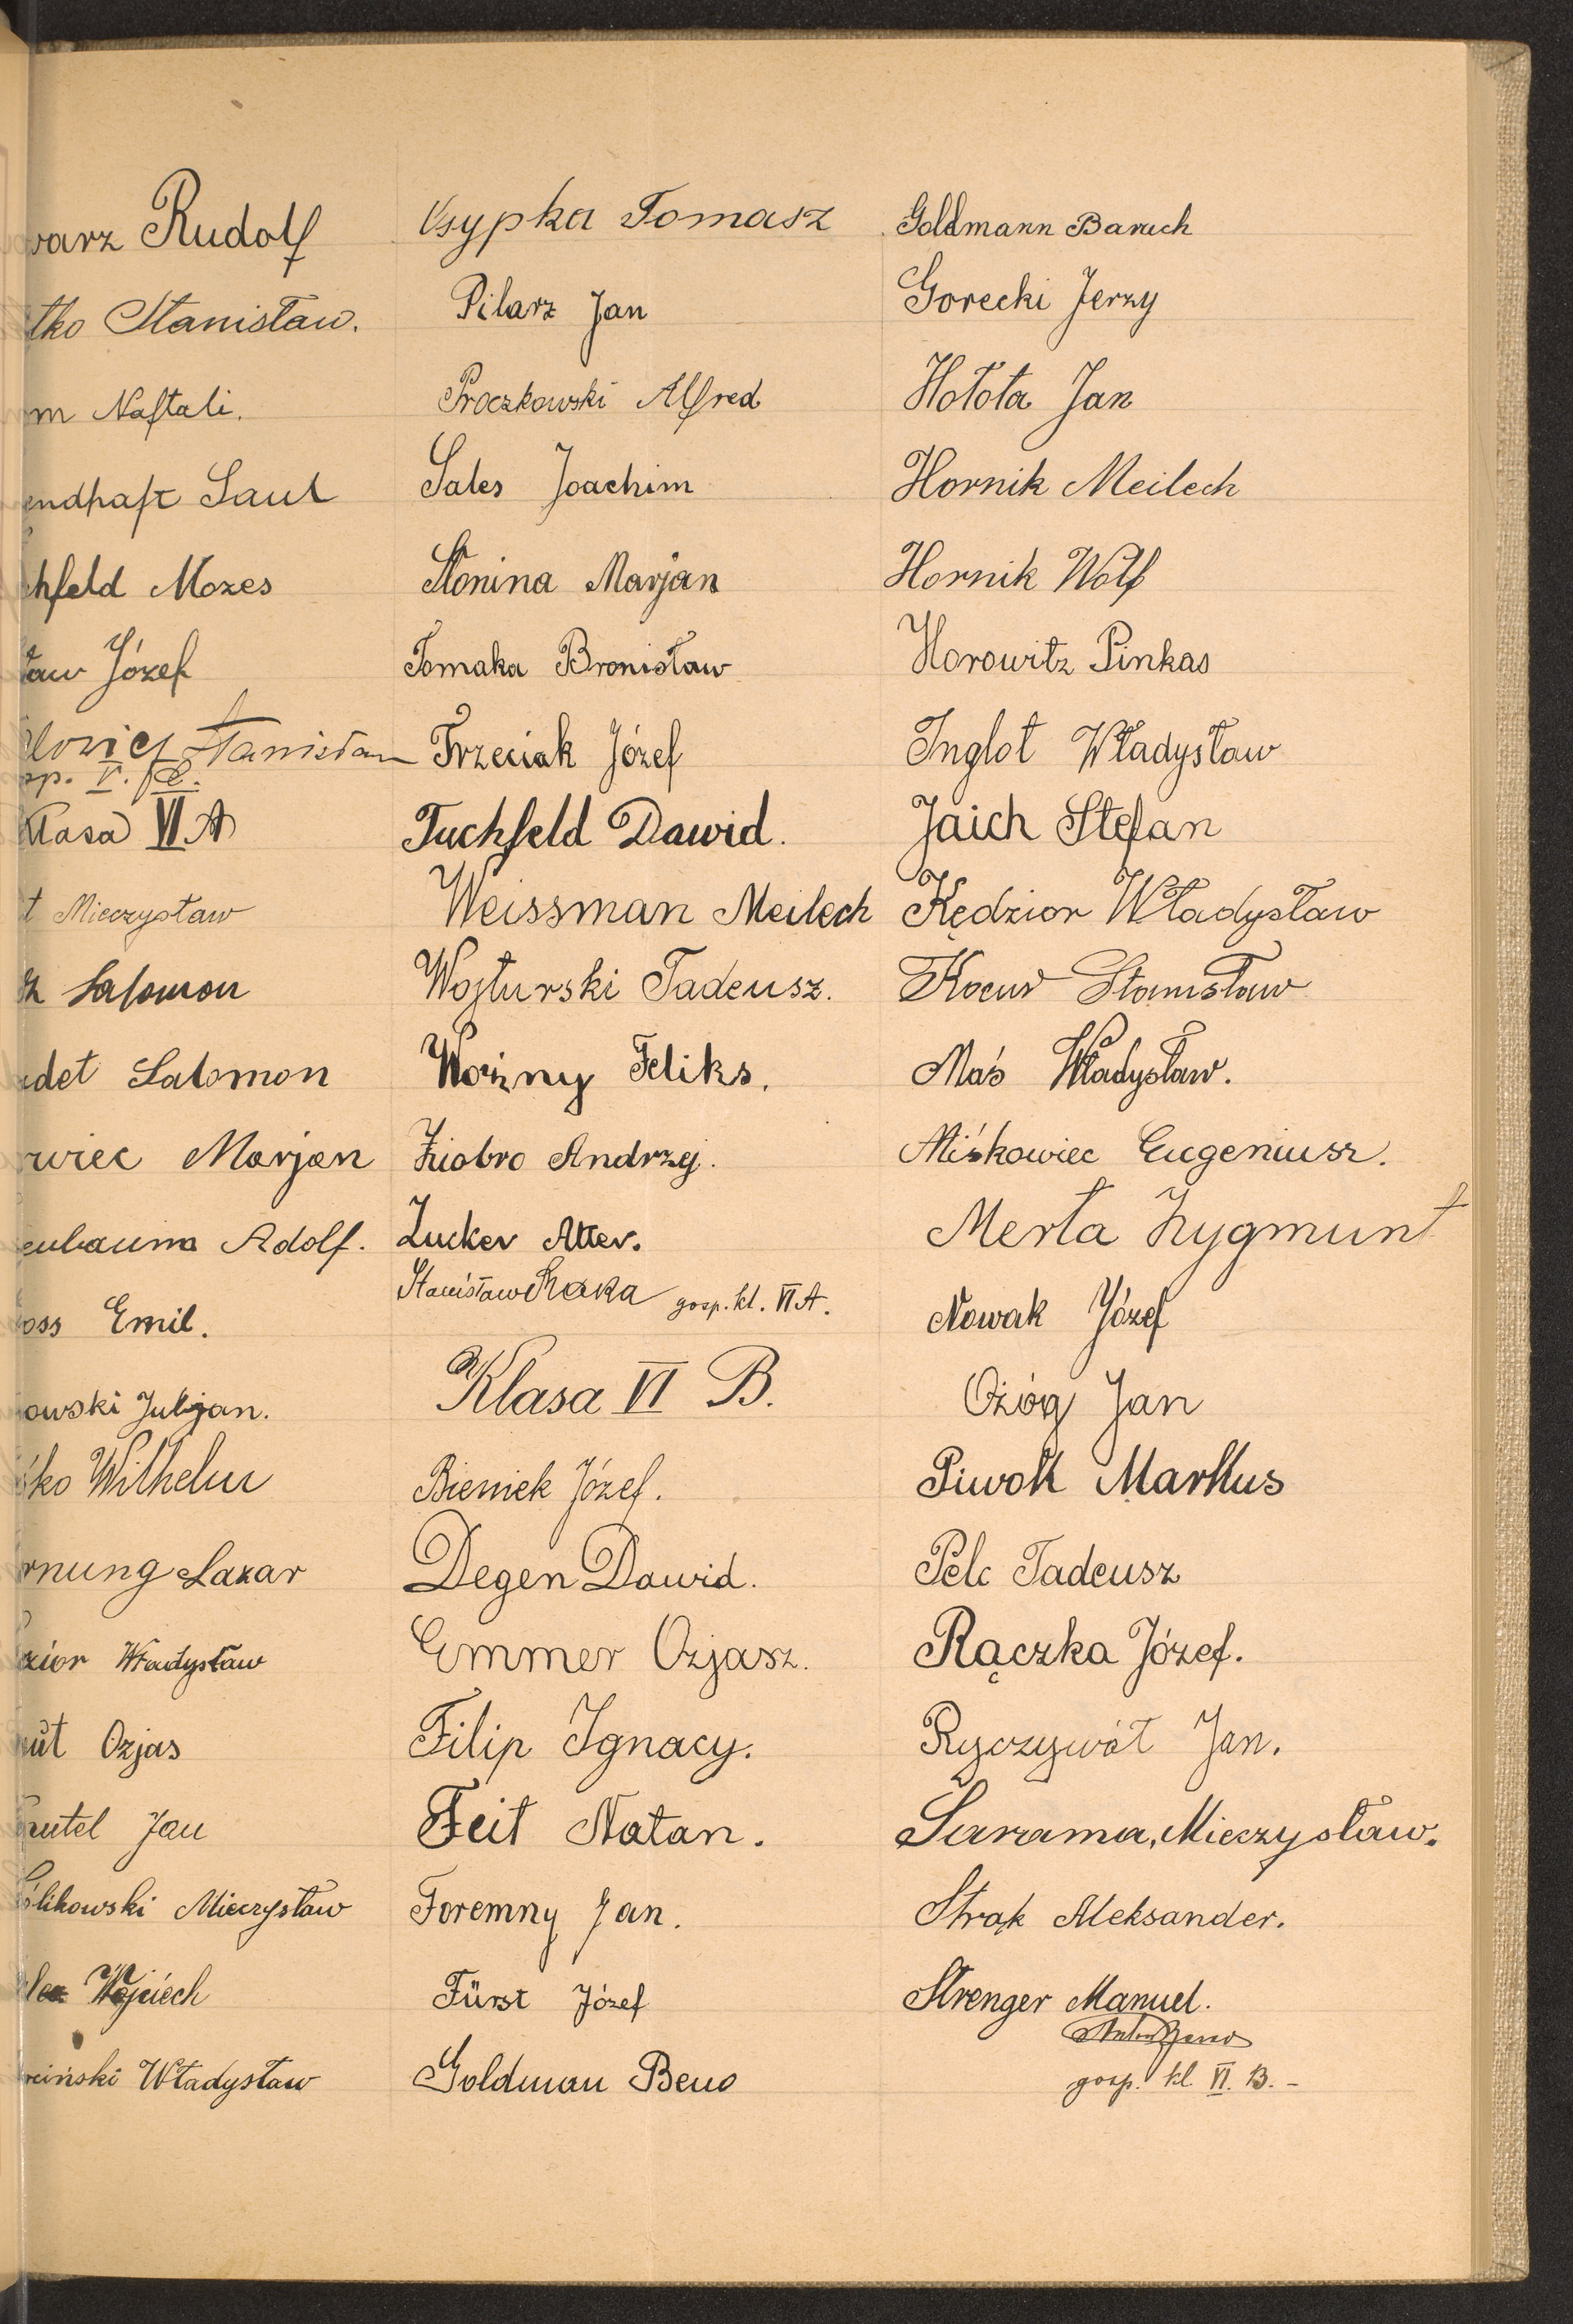 warz Rudolf
tko Stanisław.
m Naftali.
endhaft Saul
chfeld Mozes
taw Józef
Stanisław
Klasa VI A
t Mieczysław
Salomon
det Salomon
wiec Marjan
eubauma Adolf.
oss Emil.
owski Juljan.
ko Wilhelm
rnung Lazar
zior Władysław
ut Ozjas
eutel Jan
ślikowski Mieczysław
Wojciech
ciński Władysław
Osypka Tomasz
Pilarz Jan
Proczkowski Alfred
Sales Joachim
Słonina Marjan
Tomaka Bronisław
Trzeciak Józef
Tuchfeld Dawid.
Weissman Meilech
Wojturski Tadeusz.
Woźny Feliks.
Ziobro Andrzej.
Zucker Alter.
Stanisław gosp. kl. VI A.
Klasa VI B.
Bieniek Józef.
Degen Dawid.
Emmer Ozjasz.
Filip Ignacy.
Feit Natan.
Foremny Jan.
Fürst Józef
Goldman Beno
Goldmann Baruch
Gorecki Jerzy
Hołota Jan
Hornik Meilech
Hornik Wolf
Horowitz Pinkas
Inglot Władysław
Jaich Stefan
Kędzior Władysław
Kocur Stanisław
Maś Władysław.
Miśkowiec Eugeniusz.
Merta Zygmunt
Nowak Józef
Ożóg Jan
Piwok Markus
Pelc Tadeusz
Rączka Józef.
Ryczywół Jan.
Surama, Mieczysław.
Strąk Aleksander.
Strenger Manuel.
gosp. kl. VI. B. -